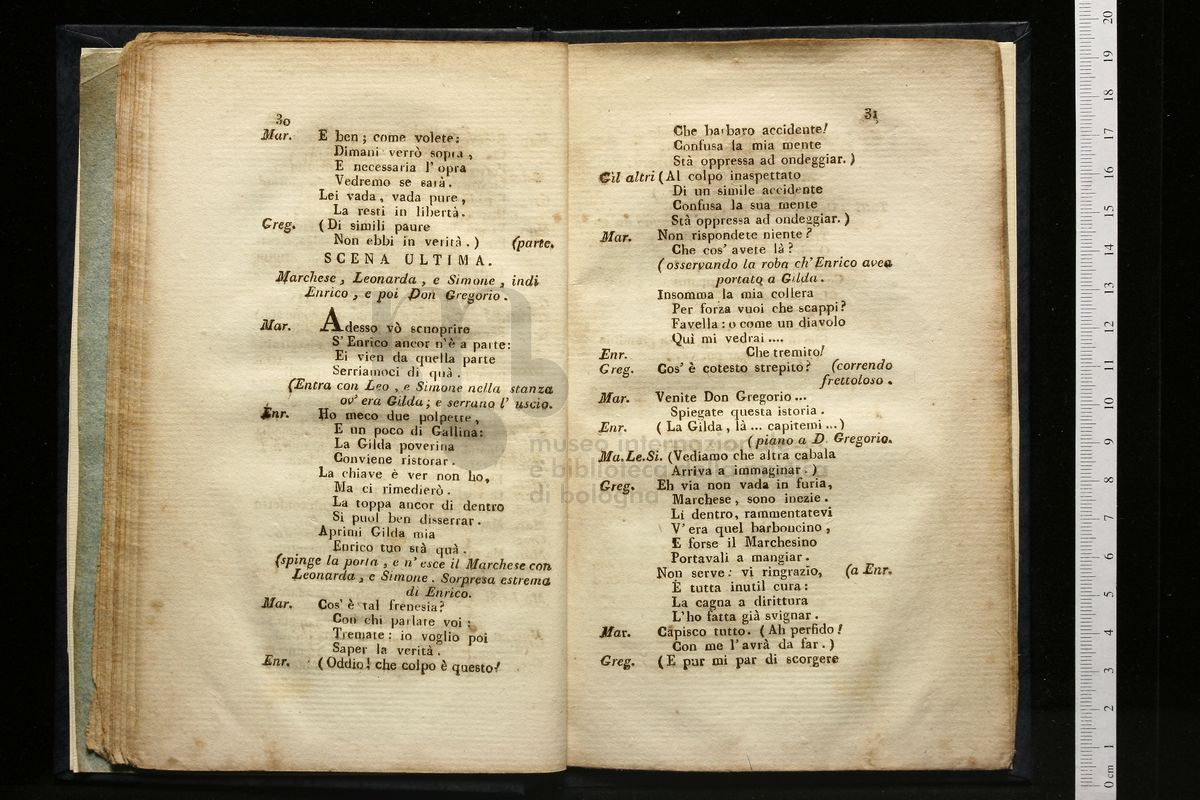 30
Mar. E ben; come volete:
Dimani verrò sopra,
E necessaria l'opra
Vedremo se sarà.
Lei vada, vada pure,
La resti in libertà.
Greg. (Di simili paure
Non ebbi in verità.) (parte.
SCENA ULTIMA.
Marchese, Leonarda, e Simone, indi
Enrico, e poi Don Gregorio.
Mar. Adesso vò scuoprire
S'Enrico ancor n'è a parte:
Ei vien da quella parte
Serriamoci di quà.
(Entra con Leo, e Simone nella stanza
ov' era Gilda; e serrano l' uscio.
Enr. Ho meco due polpette,
E un poco di Gallina:
La Gilda poverina
Conviene ristorar.
La chiave è ver non ho,
Ma ci rimedierò.
La toppa ancor di dentro
Si puol ben disserrar.
Aprimi Gilda mia
Enrico tuo stà quà.
(spinge la porta, e n' esce il Marchese con
Leonarda, e Simone. Sorpresa estrema
di Enrico.
Mar. Cos' è tal frenesia?
Con chi parlate voi:
Tremate: io voglio poi
Saper la verità.
Enr. (Oddio! che colpo è questo!
31
Che barbaro accidente!
Confusa la mia mente
Stà oppressa ad ondeggiar.)
Gil altri (Al colpo inaspettato
Di un simile accidente
Confusa la sua mente
Stà oppressa ad ondeggiar.)
Mar. Non rispondete niente?
Che cos' avete là?
(osservando la roba ch' Enrico avea
portato a Gilda.
Insomma la mia collera
Per forza vuoi che scappi?
Favella: o come un diavolo
Qui mi vedrai ....
Enr. Che tremito!
Greg. Cos' è cotesto strepito? (correndo
frettoloso.
Mar. Venite Don Gregorio ...
Spiegate questa istoria.
Enr. (La Gilda, là ... capitemi ...)
(piano a D. Gregorio.
Ma.Le.Si. (Vediamo che altra cabala
Arriva a immaginar.)
Greg. Eh via non vada in furia,
Marchese, sono inezie.
Li dentro, rammentatevi
V' era quel barboncino,
E forse il Marchesino
Portavali a mangiar.
Non serve: vi ringrazio, (a Enr.
È tutta inutil cura:
La cagna a dirittura
L'ho fatta già svignar.
Mar. Capisco tutto. (Ah perfido!
Con me l'avrà da far.)
Greg. (E pur mi par di scorgere
museo internazionale
e biblioteca della musica
di bologna
0 cm 1 2 3 4 5 6 7 8 9 10 11 12 13 14 15 16 17 18 19 20